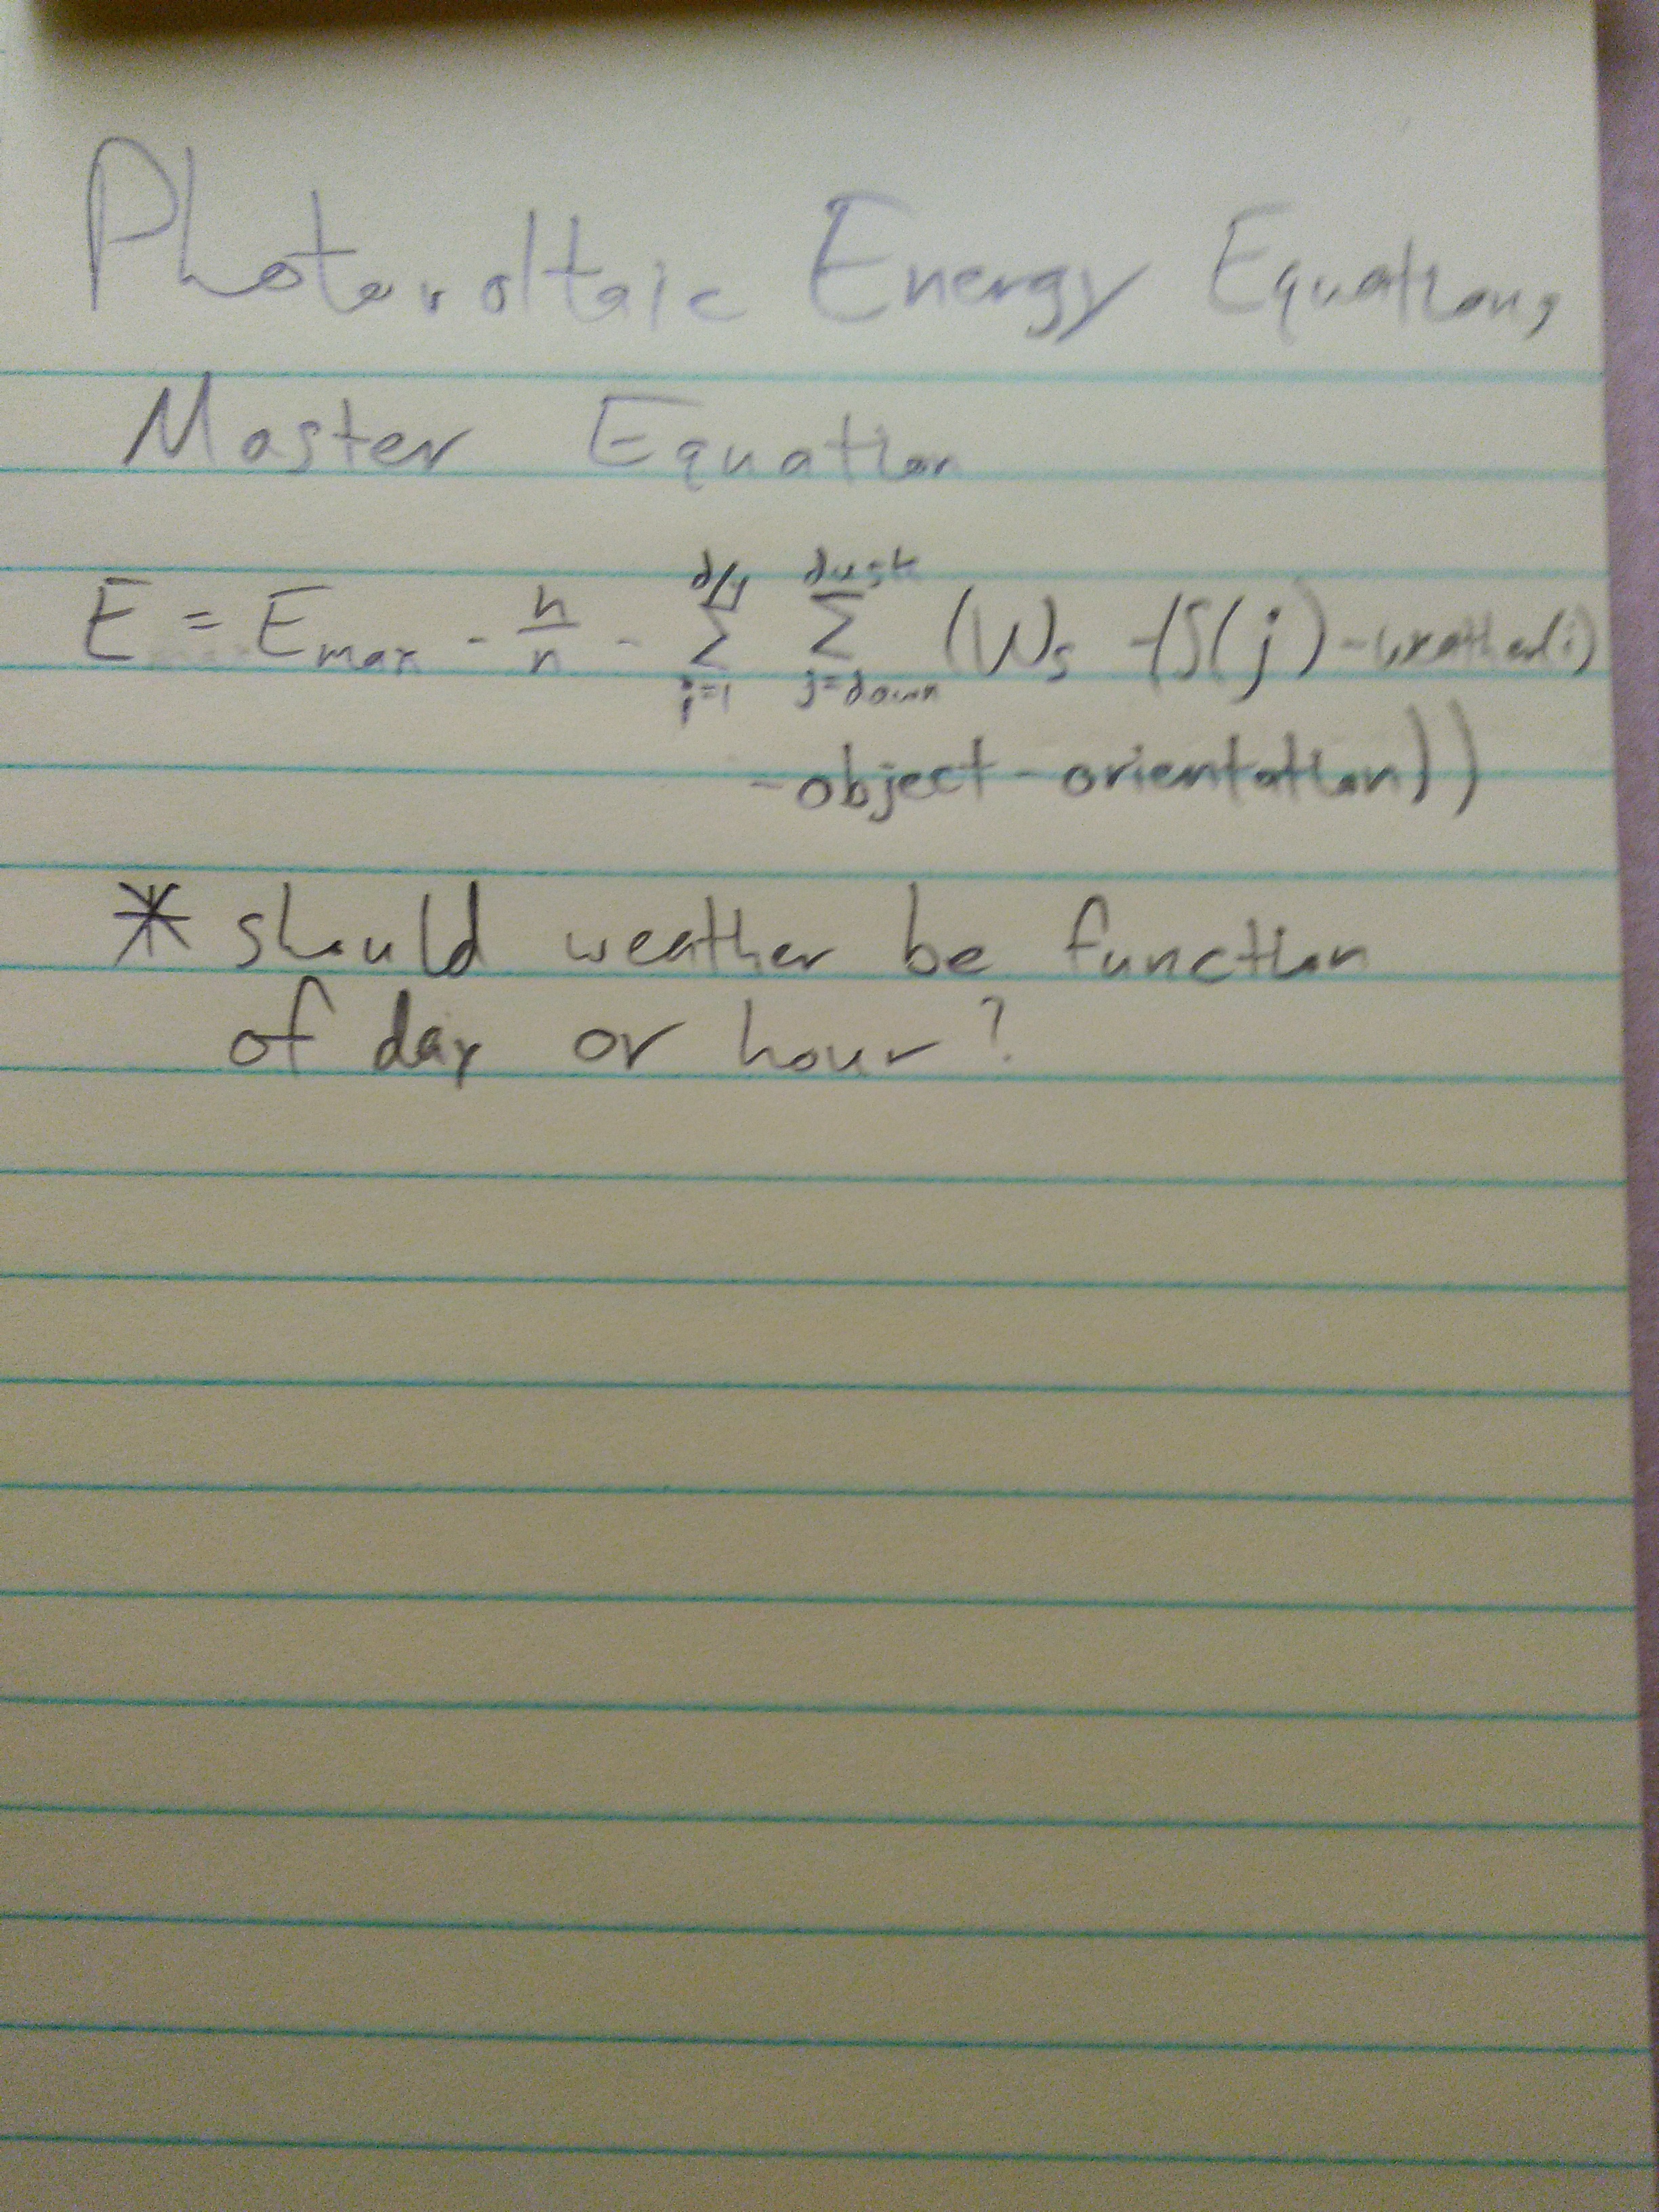 Photovoltaic Energy Equations
Master Equation
E = Emax - n/n - d/y Σ i=1 dusk Σ j=dawn (Ws - (S(j) - weather(i)
- object - orientation))
* should weather be function
of day or hour?